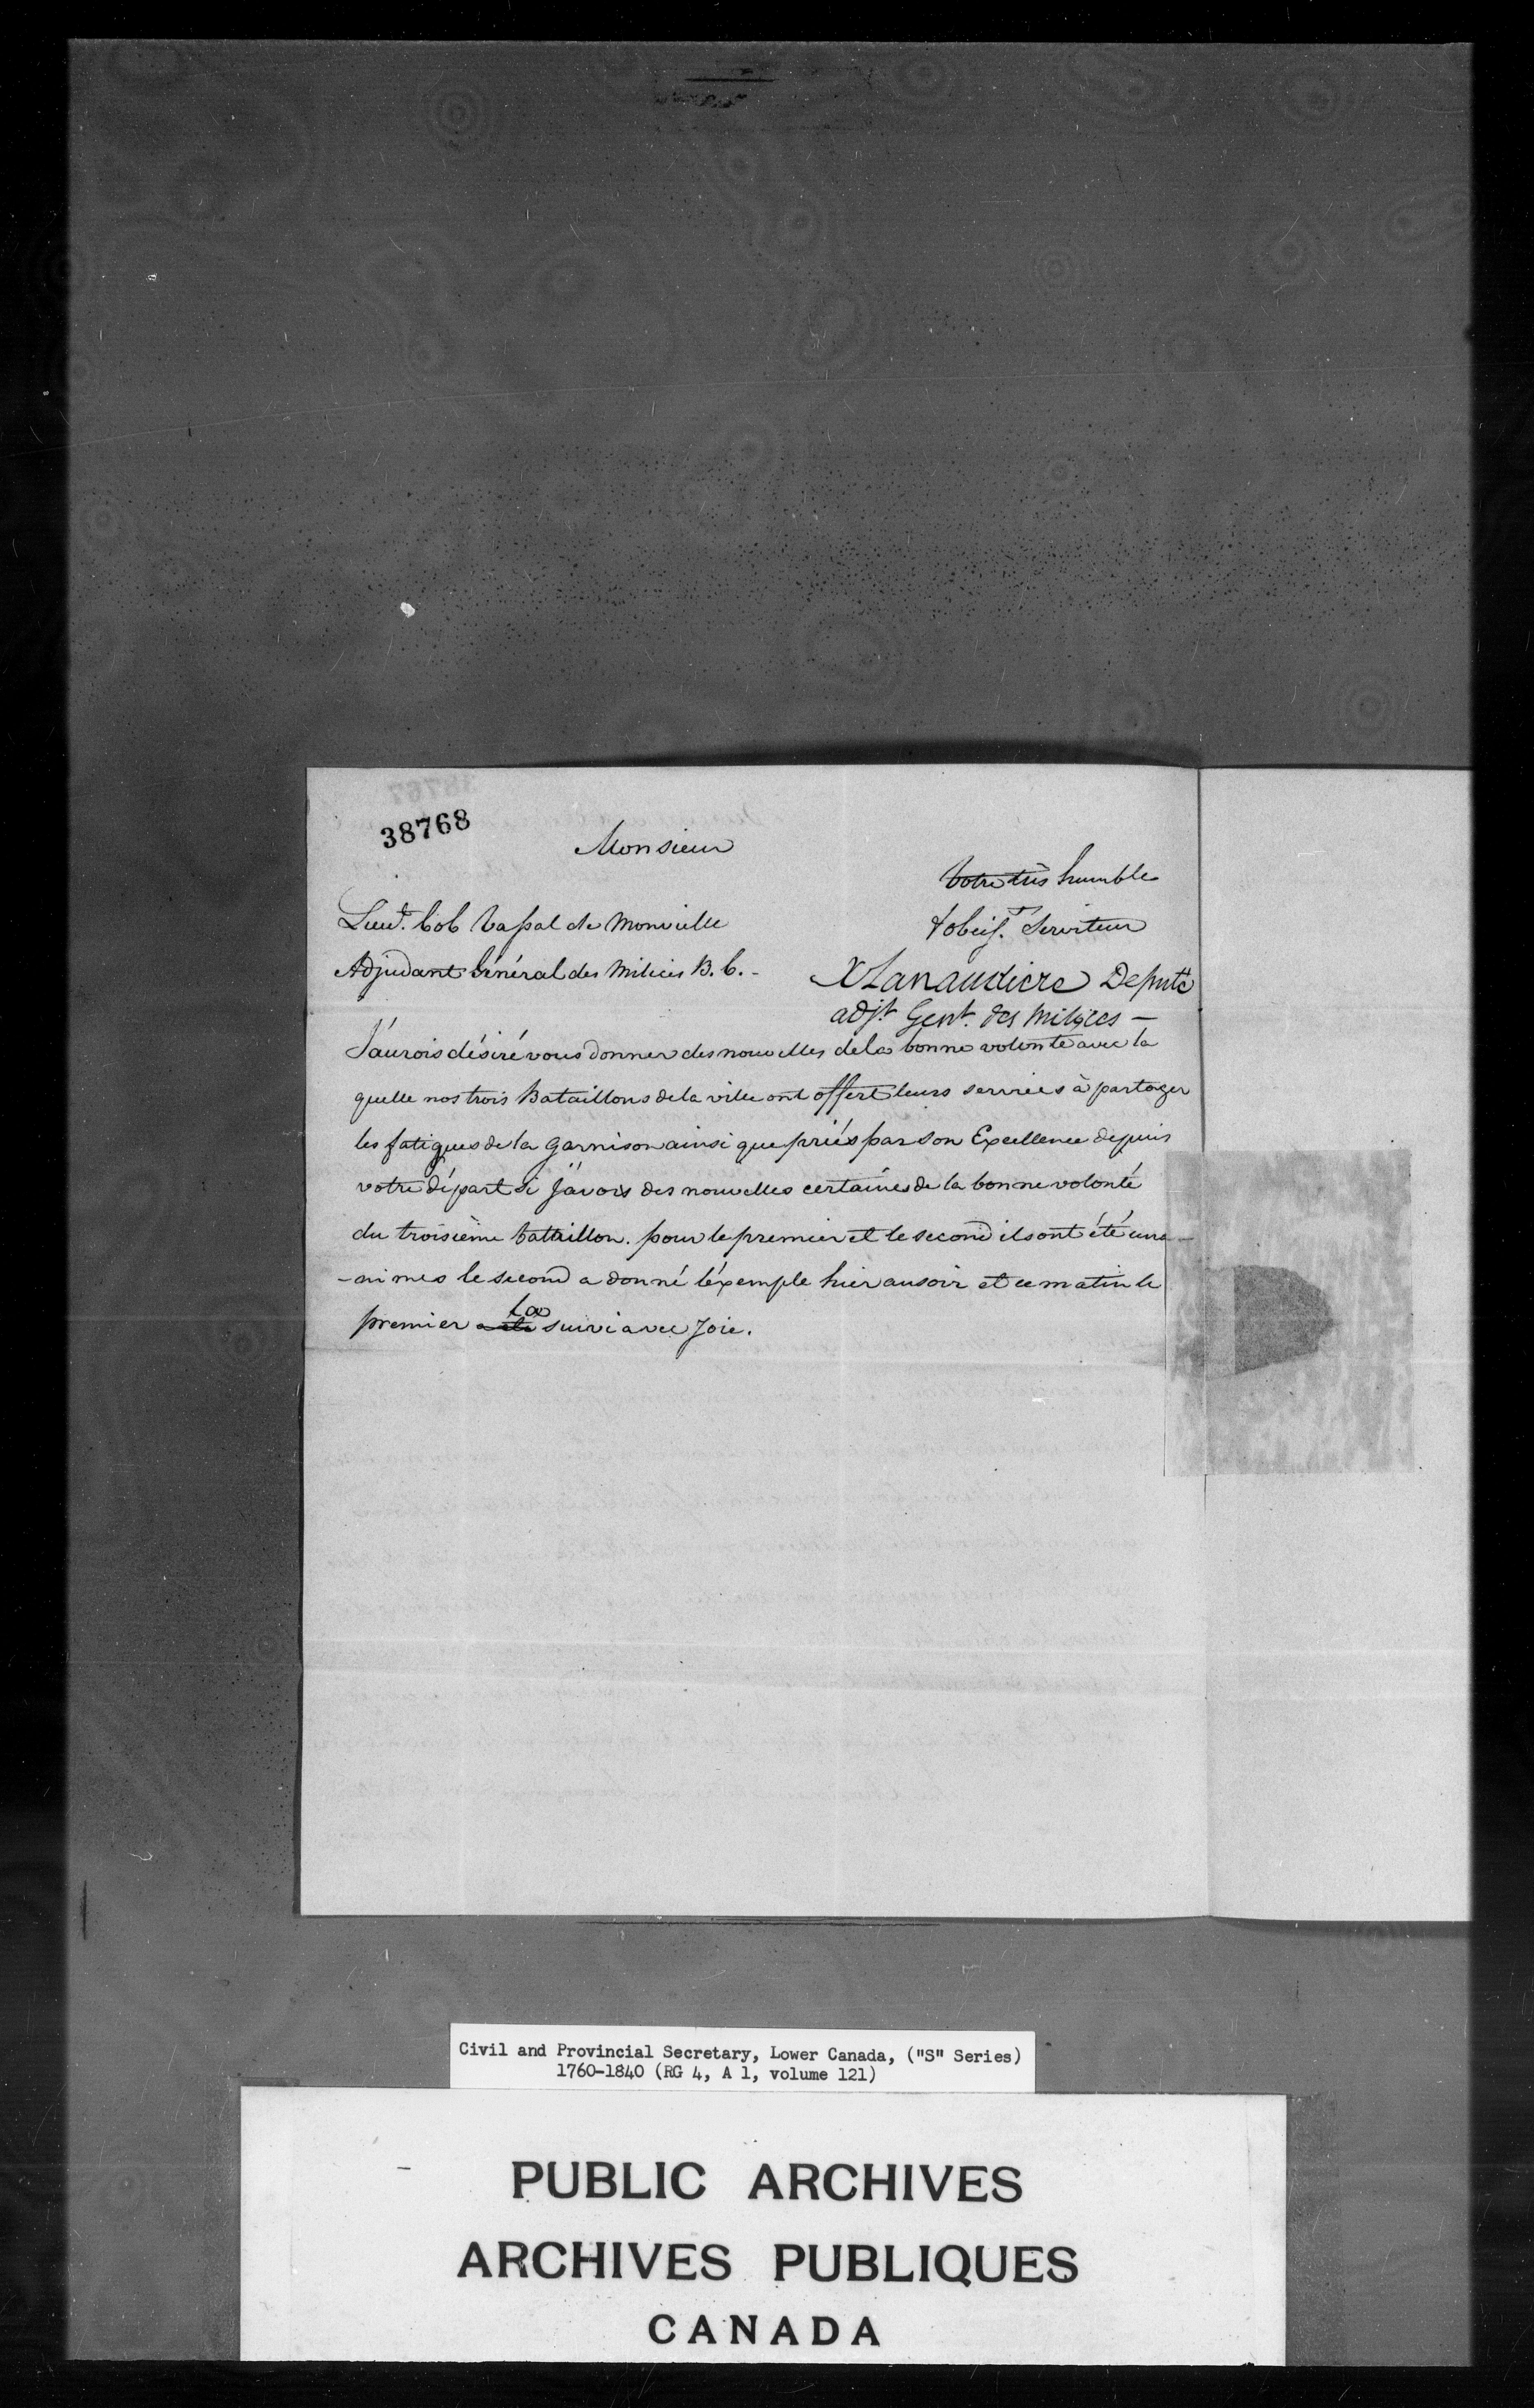 38768
Monsieur
Votre très humble
& obeis.t Serviteur
Lieut. Col Vassal de Monvielle
Adjudant Général des Milices B. C. -
X Lanaudiere Deputé
adj.t Gen.l des Milices —
J'aurois désiré vous donner des nouvelles de la bonne volonté avec la
quelle nos trois Bataillons de la ville ont offert leurs services à partager
les fatigues de la Garnison ainsi que priés par Son Excellence depuis
votre départ si J'avois des nouvelles certaines de la bonne volonté
du troisième battaillon. pour le premier et le second ils ont été una-
-nimes le second a donné l'éxemple hier au soir et ce matin le
premier la suivi avec Joie.
Civil and Provincial Secretary, Lower Canada, ("S" Series)
1760-1840 (RG 4, A 1, volume 121)
PUBLIC ARCHIVES
ARCHIVES PUBLIQUES
CANADA